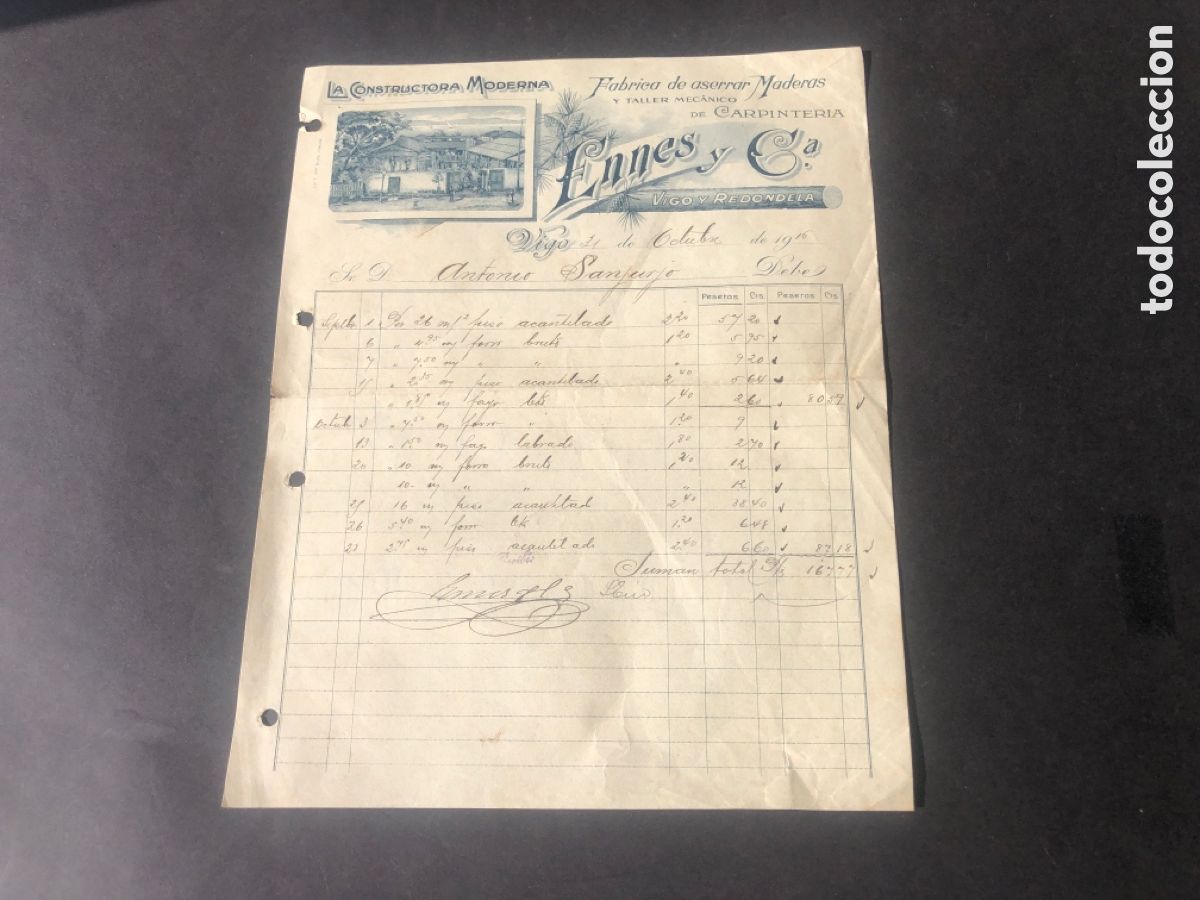 LA CONSTRUCTORA MODERNA
Fabrica de aserrar Maderas
Y TALLER MECÁNICO
DE CARPINTERIA
Ennes y Cª
VIGO Y REDONDELA
Vigo 31 de Octubre de 1916
Sr. D. Antonio Sanjurjo Debe
Pesetas Cts Pesetas Cts
1 26 m² piso acantilado 2.20 57 20
6 " 4.95 m forro bruto 1.20 5 95
7 " 7.50 m " " " 9 20
" 2.35 m piso acantilado 2.40 5 64
" 1.85 m fayo btº 1.40 2 60 80 59
Octub 3 " 7.50 m forro " 1.20 9
13 " 1.50 m fayo labrado 1.80 2 70
20 " 10 m forro bruto 1.20 12
10 m " " " 12
16 m piso acantilad 2.40 38 40
26 5.40 m forro btº 1.20 6 48
2.75 m piso acantilado 2.40 6 60 87 18
Suman total 167 77
todocoleccion